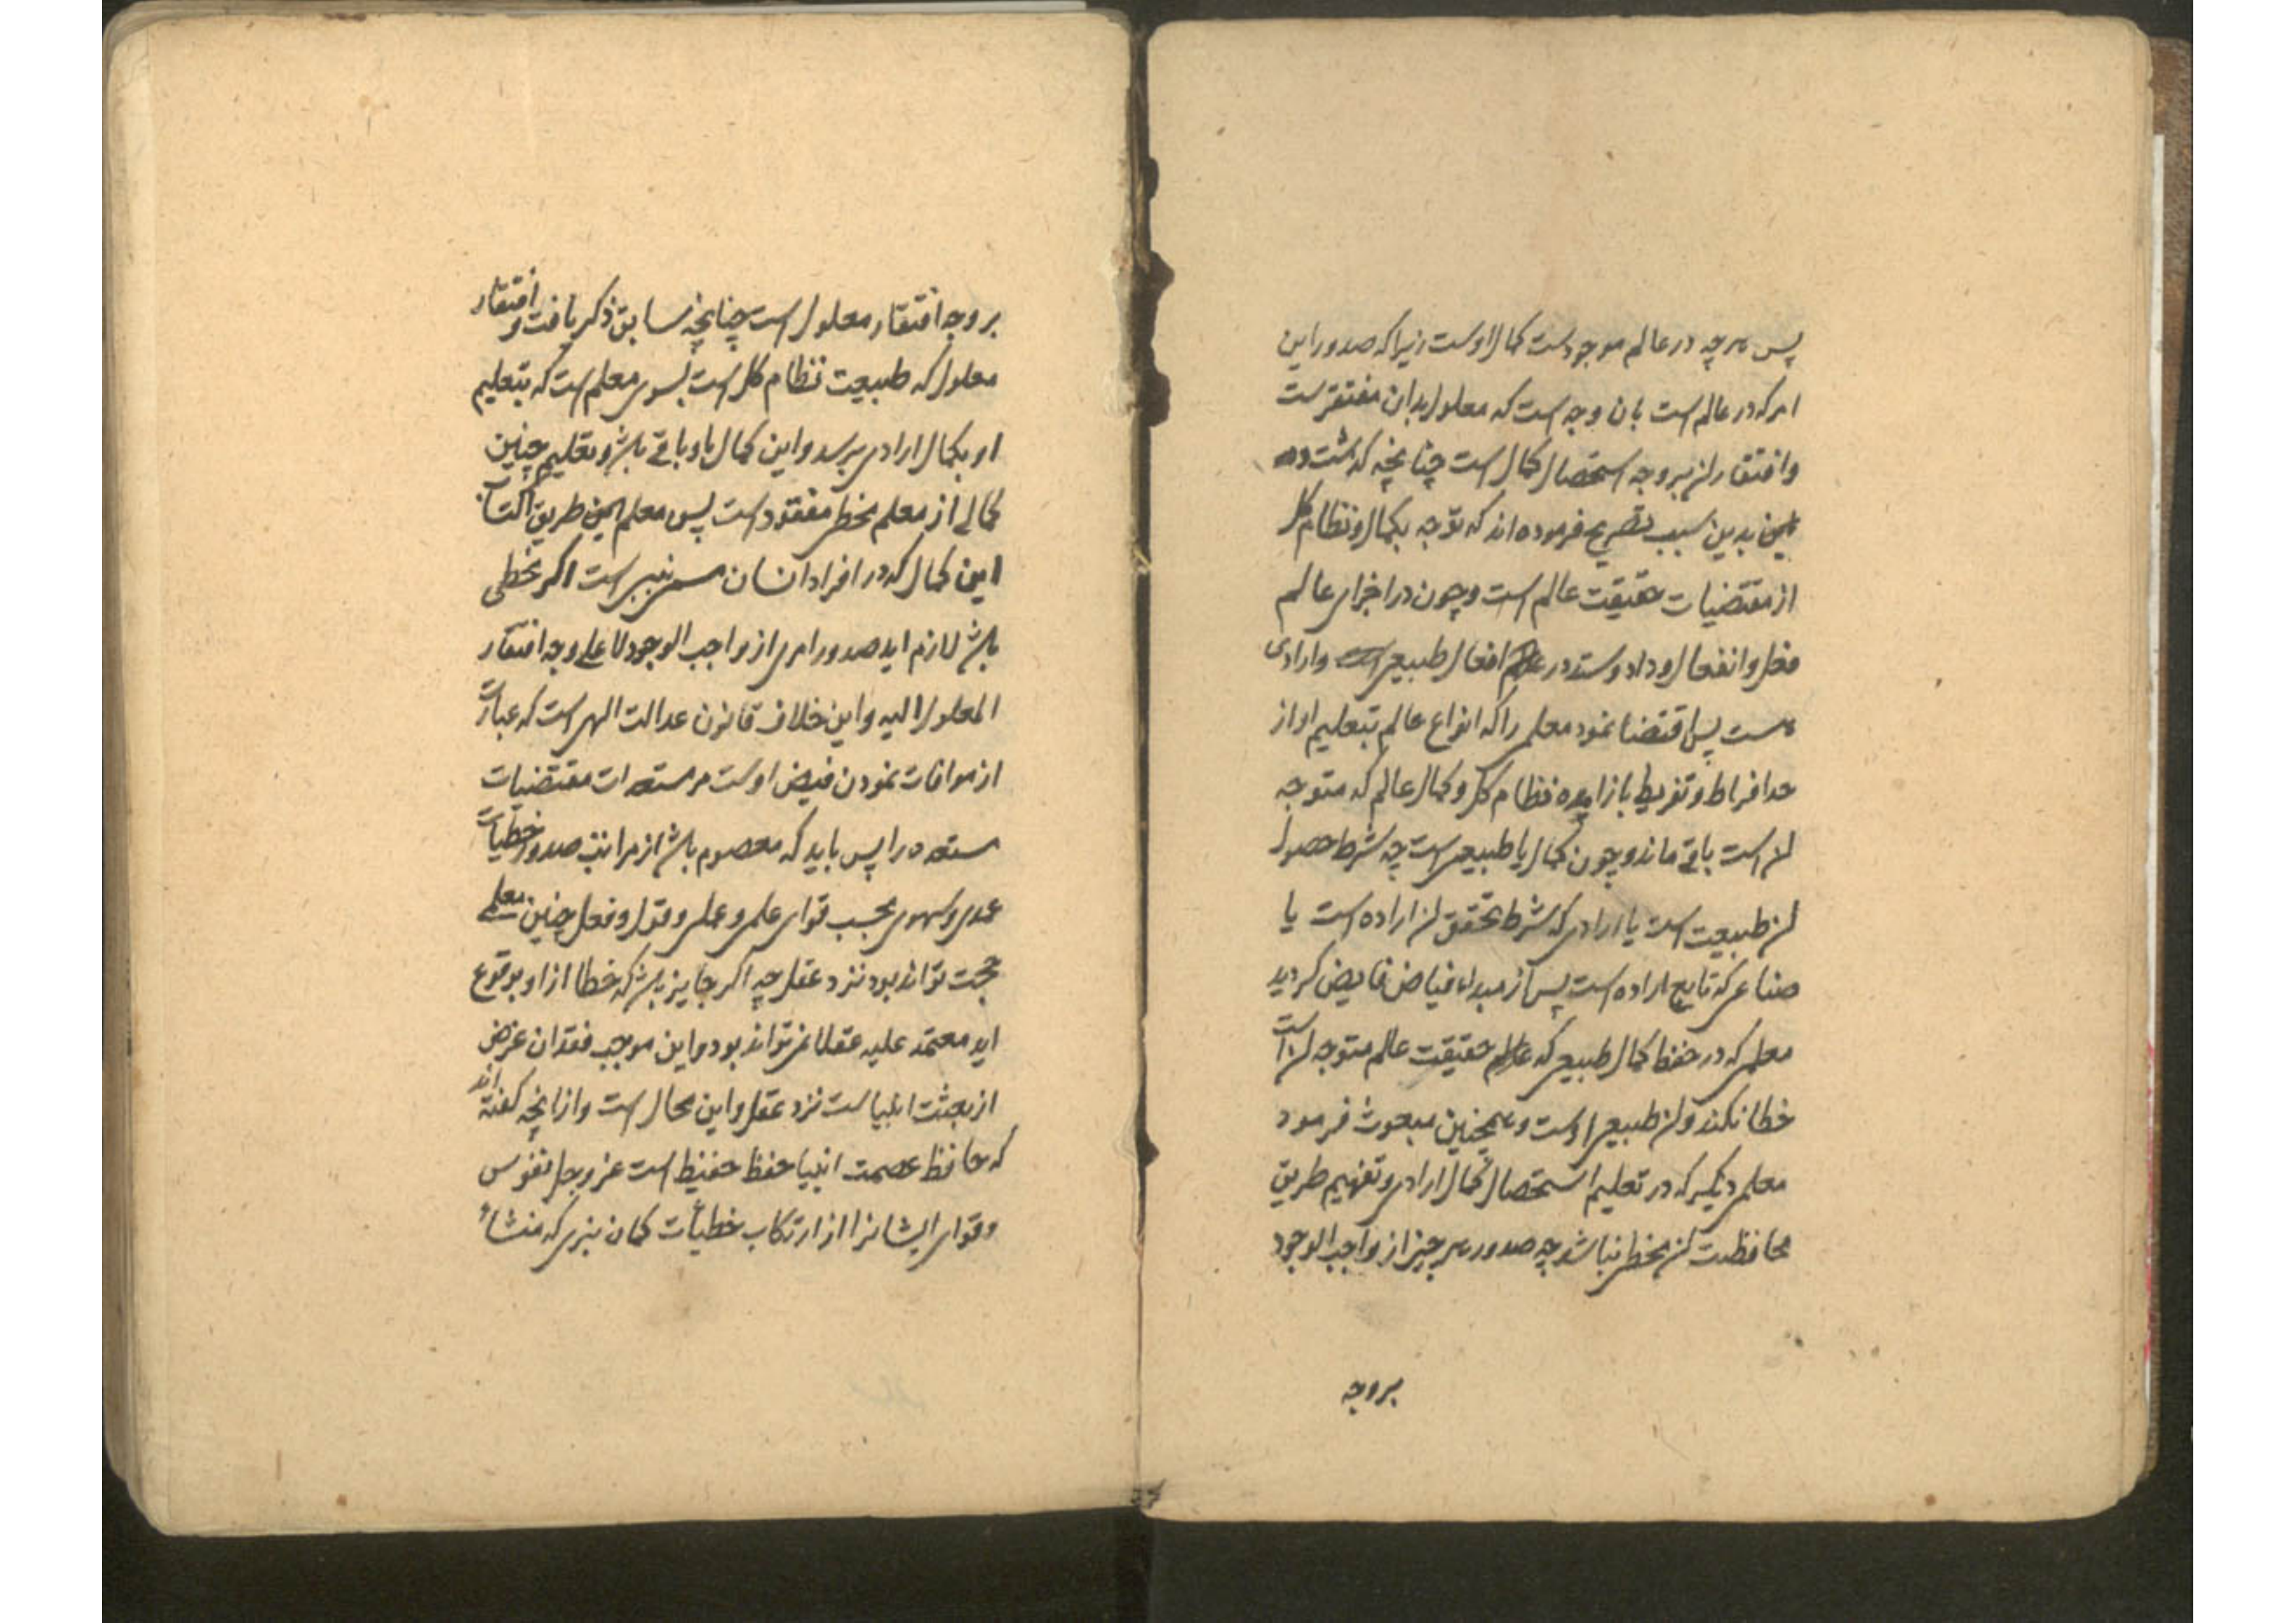 پس هرچه در عالم موجودست کمال اوست زیرا که صدور این
امر که در عالم است بان وجه است که معلول بدان مفتقرست
وافتقار ان بر وجه استحصال کمال است چنانچه گذشت و
بدین سبب تصریح فرموده اند که توجه بکمال و نظام کل
از مقتضیات حقیقت عالم است و چون در اجزای عالم
فعل و انفعال و داد و ستد در افعال طبیعی است و ارادی
هست پس اقتضا نمود معلمی را که انواع عالم بتعلیم او از
حد افراط و تفریط باز امده نظام کل و کمال عالم که متوجه
ان است باقی ماند و چون کمال یا طبیعی است چه شرط حصول
ان طبیعت است یا ارادی که شرط تحقق ان اراده است یا
صناعی که تابع اراده است پس از مبداء فیاض فایض گردید
معلمی که در حفظ کمال طبیعی که حقیقت عالم متوجه ان است
خطا نکند و ان طبیعی اوست و همچنین مبعوث فرمود
معلمی دیگر که در تعلیم استحصال کمال ارادی و تفهیم طریق
محافظت ان مخطی نباشد چه صدور هر چیز از واجب الوجود
بر وجه
بر وجه افتقار معلول است چنانچه سابق ذکر یافت و افتقار
معلول که طبیعت نظام کل است بسوی معلم است که بتعلیم
او بکمال ارادی برسد و این کمال باو باقی باشد و تعلیم چنین
کمالی از معلم مخطی مفقود است پس معلم این طریق اکتساب
این کمال که در افراد انسان است اگر مخطی
باشد لازم اید صدور امری از واجب الوجود لا علی وجه افتقار
المعلول الیه و این خلاف قانون عدالت الهی است که عبارت
از موافات نمودن فیض اوست مر مستعدات مقتضیات
مستعده را پس باید که معصوم باشد از مراتب صدور خطیات
عمدی و سهوی بحسب قوای علمی و عملی و قول و فعل چنین معلمی
حجت تواند بود نزد عقل چه اگر جایز باشد که خطا از او بوقوع
اید معتمد علیه عقلا نمی تواند بود و این موجب فقدان غرض
از بعثت انبیاست نزد عقل و این محال است و از انچه گفته اند
که حافظ عصمت انبیا حفظ حفیظ است عز و جل نفوس
و قوای ایشانرا از ارتکاب خطیأت گمان نبری که منشاء